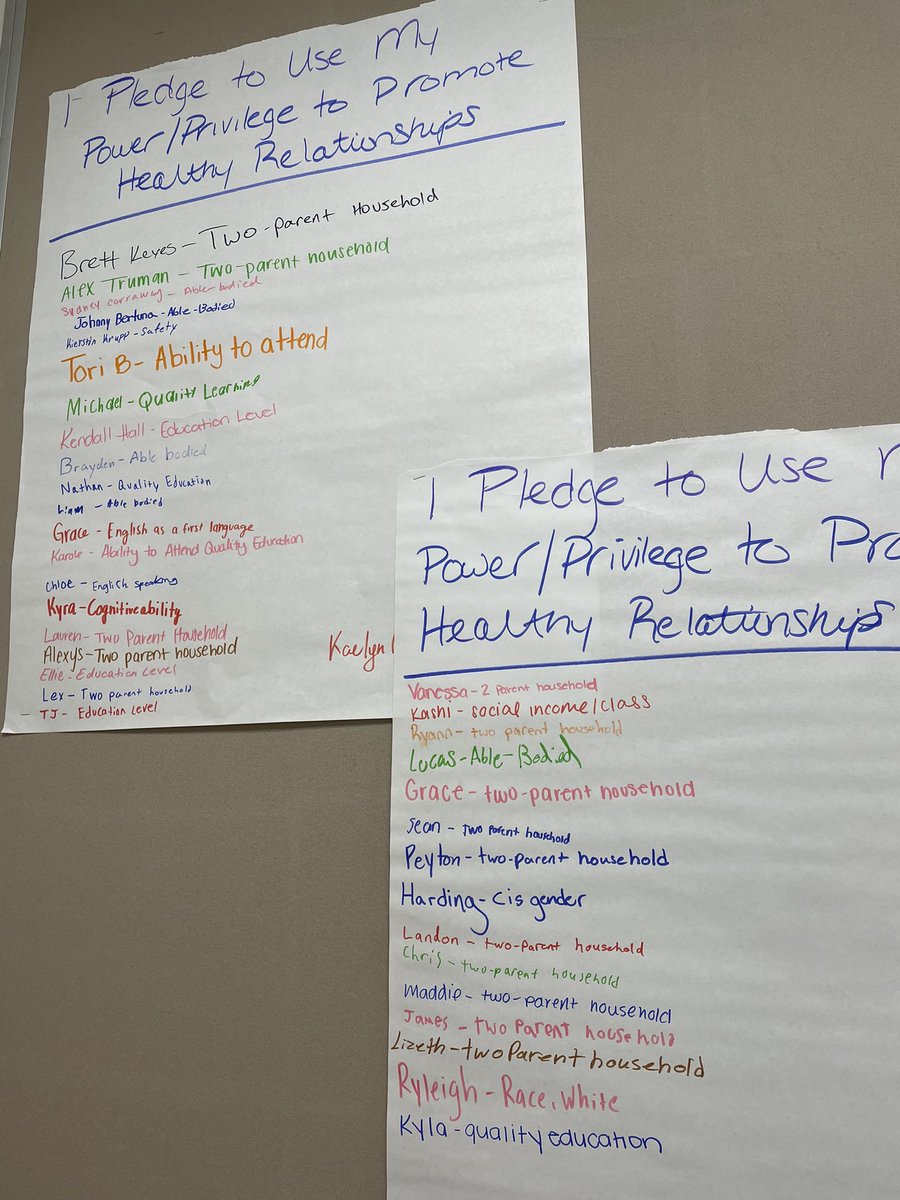 I Pledge to Use My
Power/Privilege to Promote
Healthy Relationships
Brett Keyes - Two-parent Household
Alex Truman - Two-parent household
Sydney carraway - Able-bodied
Johnny Bertuna - Able-Bodied
Kierstin Krupp - Safety
Tori B - Ability to attend
Michael - Quality Learning
Kendall Hall - Education Level
Brayden - Able bodied
Nathan - Quality Education
Liam - Able bodied
Grace - English as a first language
Karole - Ability to Attend Quality Education
Chloe - English speaking
Kyra - Cognitive ability
Lauren - Two Parent Household
Alexys - Two parent household
Kaelyn
Ellie - Education Level
Lex - Two parent household
TJ - Education Level
I Pledge to Use
Power/Privilege to Pro
Healthy Relationships
Vanessa - 2 Parent household
Kashi - social income/class
Ryann - two parent household
Lucas - Able-Bodied
Grace - two-parent household
Sean - Two parent household
Peyton - two-parent household
Harding - Cis gender
Landon - two-parent household
Chris - two-parent household
Maddie - two-parent household
James - two parent household
Lizeth - two Parent household
Ryleigh - Race, White
Kyla - quality education